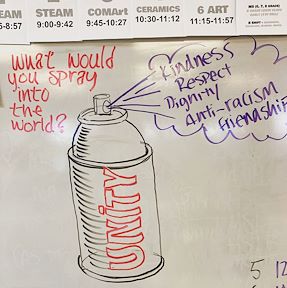 STEAM
COMArt
CERAMICS
6 ART
9:00-9:42
9:45-10:27
10:30-11:12
11:15-11:57
What would
you spray
into
the
world?
Kindness
Respect
Dignity
Anti-racism
Friendship
UNiTY
5